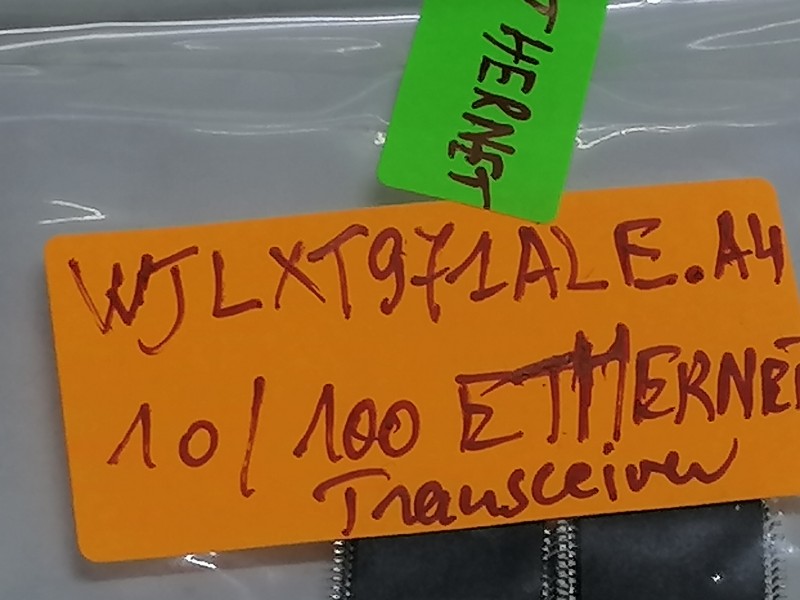 THERNET
WJLXT971ALE.A4
10/100 ETHERNET
Transceiver